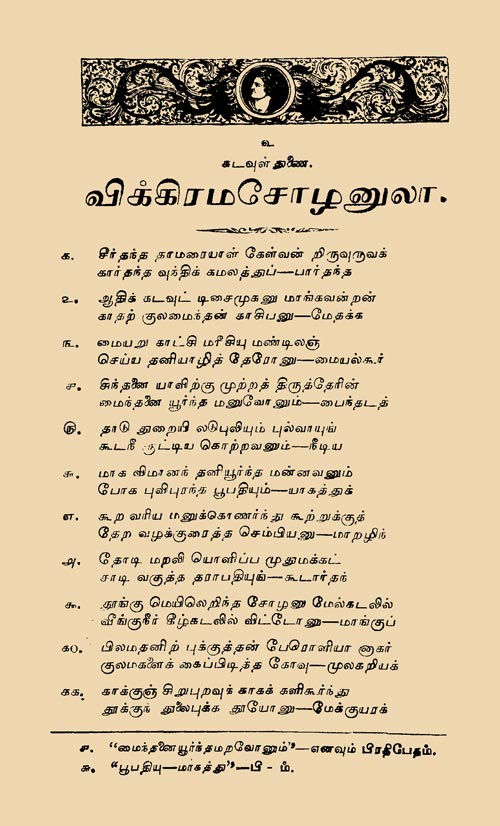 ௨
கடவுள் துணை.
விக்கிரமசோழனுலா.
௧. சீர்தந்த தாமரையாள் கேள்வன் றிருவுருவக்
கார்தந்த வுந்திக் கமலத்துப்—பார்தந்த
௨. ஆதிக் கடவுட் டிசைமுகனு மாங்கவன்றன்
காதற் குலமைந்தன் காசிபனு—மேதக்க
௩. மையறு காட்சி மரீசியு மண்டிலஞ்
செய்ய தனியாழித் தேரோனு—மையல்கூர்
௪. சிந்தனை யாவிற்கு முற்றத் திருத்தேரின்
மைந்தனை யூர்ந்த மனுவோனும்—பைந்தடத்
௫. தாடு துறையி லடுபுலியும் புல்வாயுங்
கூடநீ ரூட்டிய கொற்றவனும்—நீடிய
௬. மாக விமானந் தனியூர்ந்த மன்னவனும்
போக புவிபுரந்த பூபதியும்—யாகத்துக்
௭. கூற வரிய மனுக்கொணர்ந்து கூற்றுக்குத்
தேற வழக்குரைத்த செம்பியனு—மாறழிந்
௮. தோடி மறலி யொளிப்ப முதுமக்கட்
சாடி வகுத்த தராபதியுங்—கூடார்தந்
௯. தூங்கு மெயிலெறிந்த சோழனு மேல்கடலில்
வீங்குநீர் கீழ்கடலில் விட்டோனு—மாங்குப்
௧௦. பிலமதனிற் புக்குத்தன் பேரொளியா னாகர்
குலமகளைக் கைப்பிடித்த கோவு—முலகறியக்
௧௧. காக்குஞ் சிறுபுறவுக் காகக் களிகூர்ந்து
தூக்குந் துலைபுக்க தூயோனு—மேக்குயரக்
௪. "மைந்தனையூர்ந்தமறவோனும்"—எனவும் பிரதிபேதம்.
௬. "பூபதியு—மாகத்து"—பி - ம்.